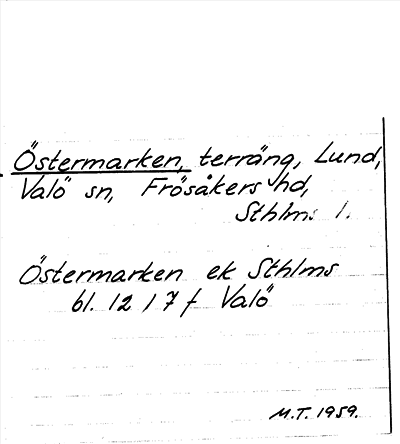 Östermarken, terräng, Lund,
Valö sn, Frösåkers hd,
Sthlms l.
Östermarken ek Sthlms
bl. 12 17 f Valö
M.T. 1959.